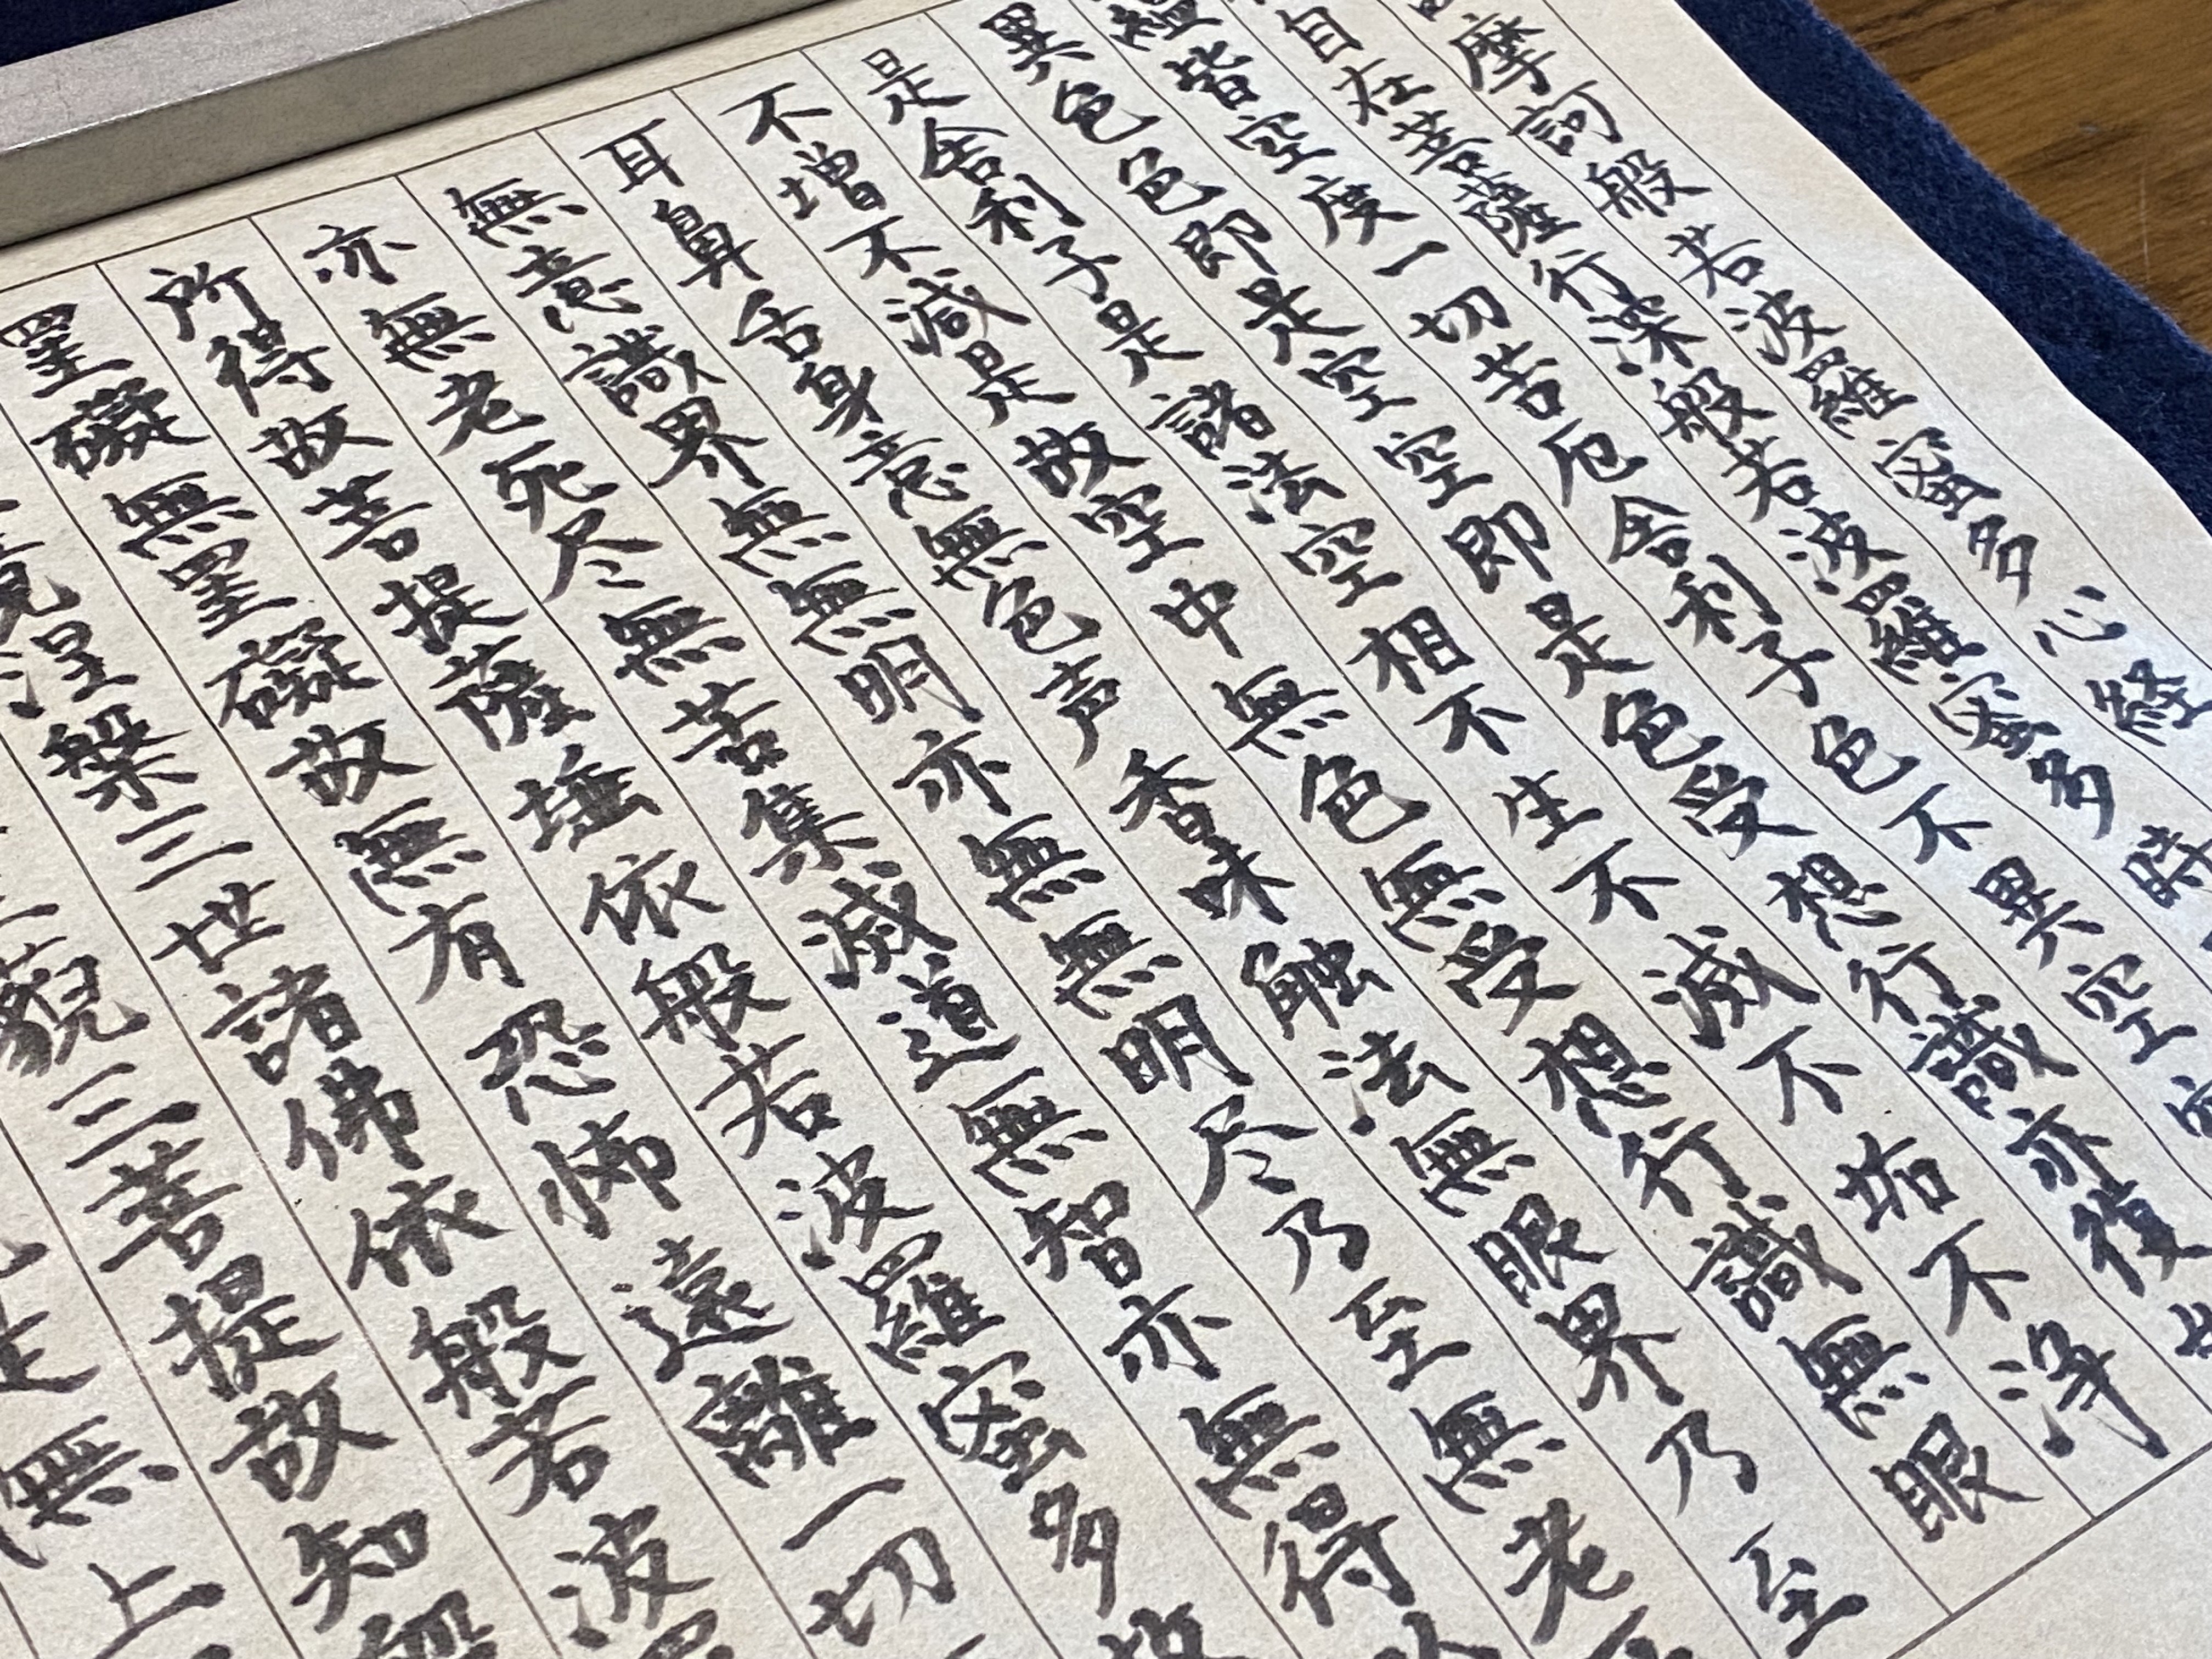 摩訶般若波羅蜜多心経
自在菩薩行深般若波羅蜜多時
蘊皆空度一切苦厄舎利子色不異空空
異色色即是空空即是色受想行識亦復
是舎利子是諸法空相不生不滅不垢不浄
不増不減是故空中無色無受想行識無眼
耳鼻舌身意無色声香味触法無眼界乃至
無意識界無無明亦無無明尽乃至無老死
亦無老死尽無苦集滅道無智亦無得以
所得故菩提薩埵依般若波羅蜜多故
罣礙無罣礙故無有恐怖遠離一切
竟涅槃三世諸佛依般若波羅
藐三菩提故知般
是無上